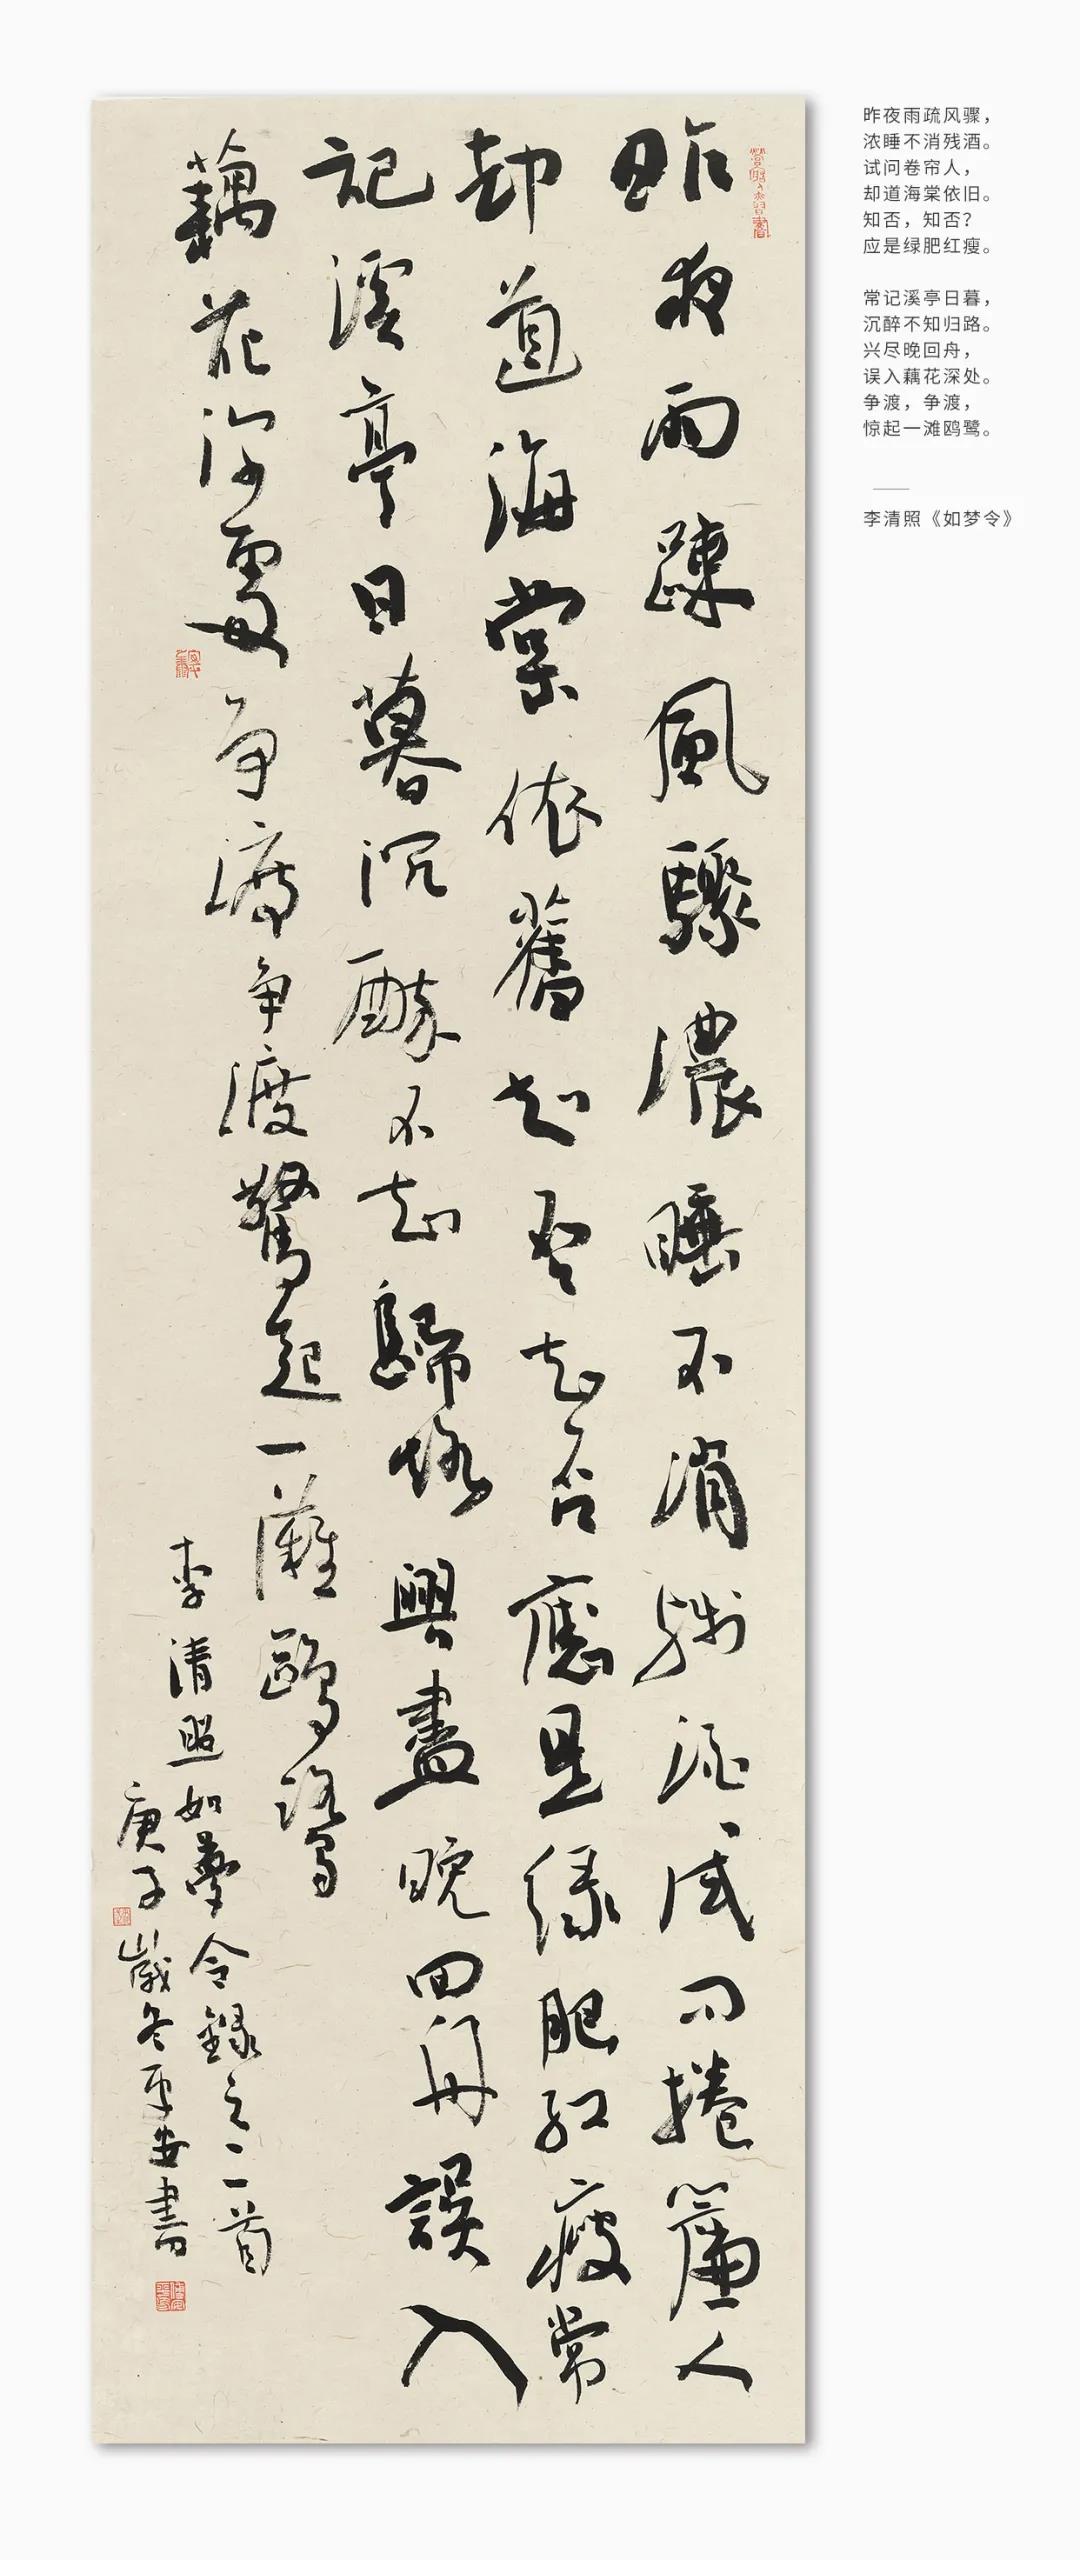 昨夜雨踈風驟濃睡不消殘酒試問捲簾人
却道海棠依舊知否知否應是綠肥紅瘦常
記溪亭日暮沉醉不知歸路興盡晚回舟誤入
藕花深處争渡争渡驚起一灘鷗鷺
李清照如夢令錄之二首
庚子歲冬平安書
昨夜雨疏风骤，
浓睡不消残酒。
试问卷帘人，
却道海棠依旧。
知否，知否？
应是绿肥红瘦。
常记溪亭日暮，
沉醉不知归路。
兴尽晚回舟，
误入藕花深处。
争渡，争渡，
惊起一滩鸥鹭。
李清照《如梦令》